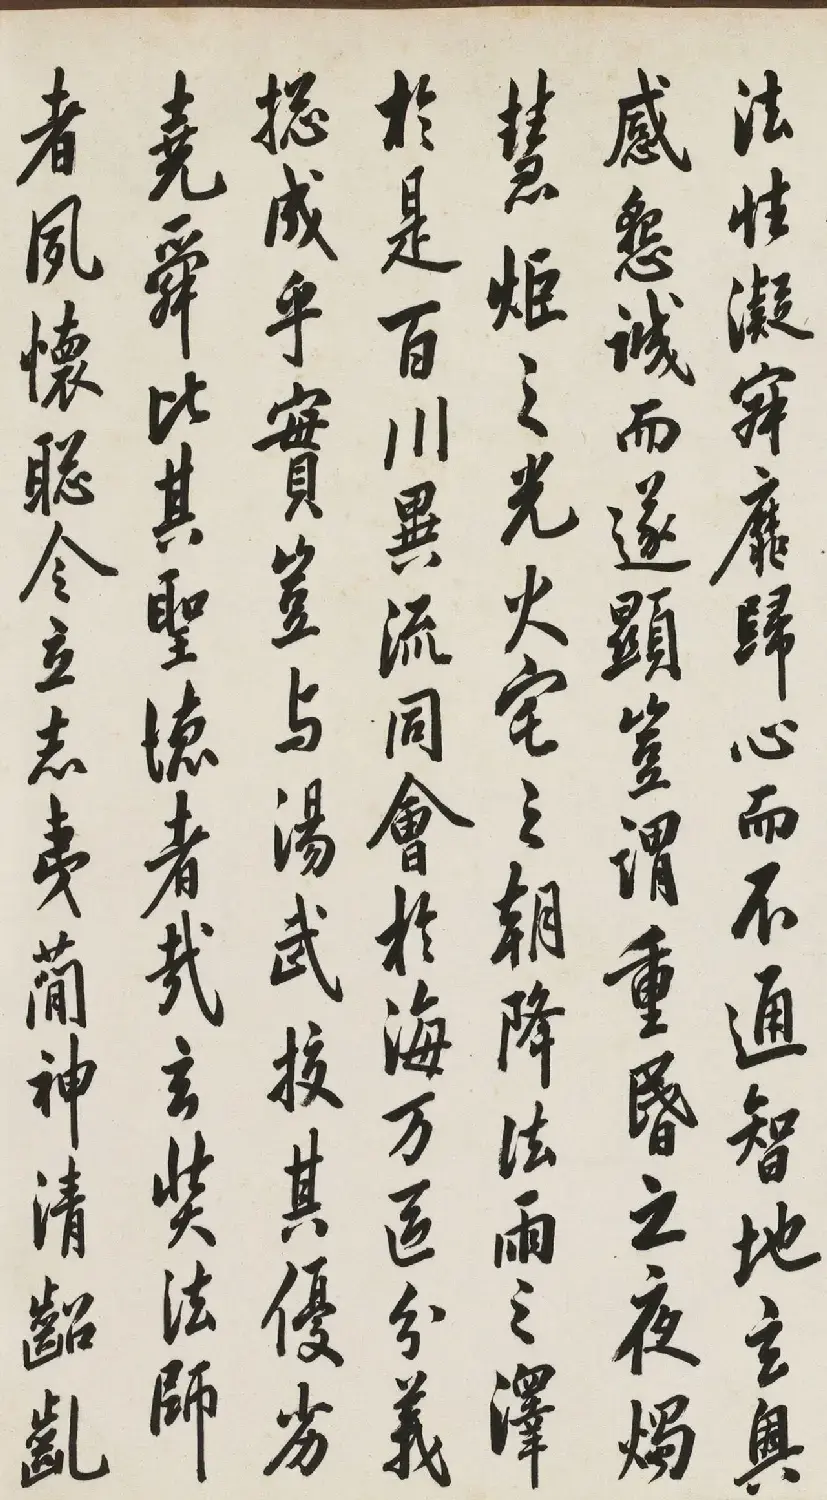 法性凝寂靡歸心而不通智地玄奧
感懇誠而遂顯豈謂重昏之夜燭
慧炬之光火宅之朝降法雨之澤
於是百川異流同會於海万區分義
捴成乎實豈与湯武挍其優劣
堯舜比其聖德者哉玄奘法師
者夙懷聡令立志夷簡神清齠齔